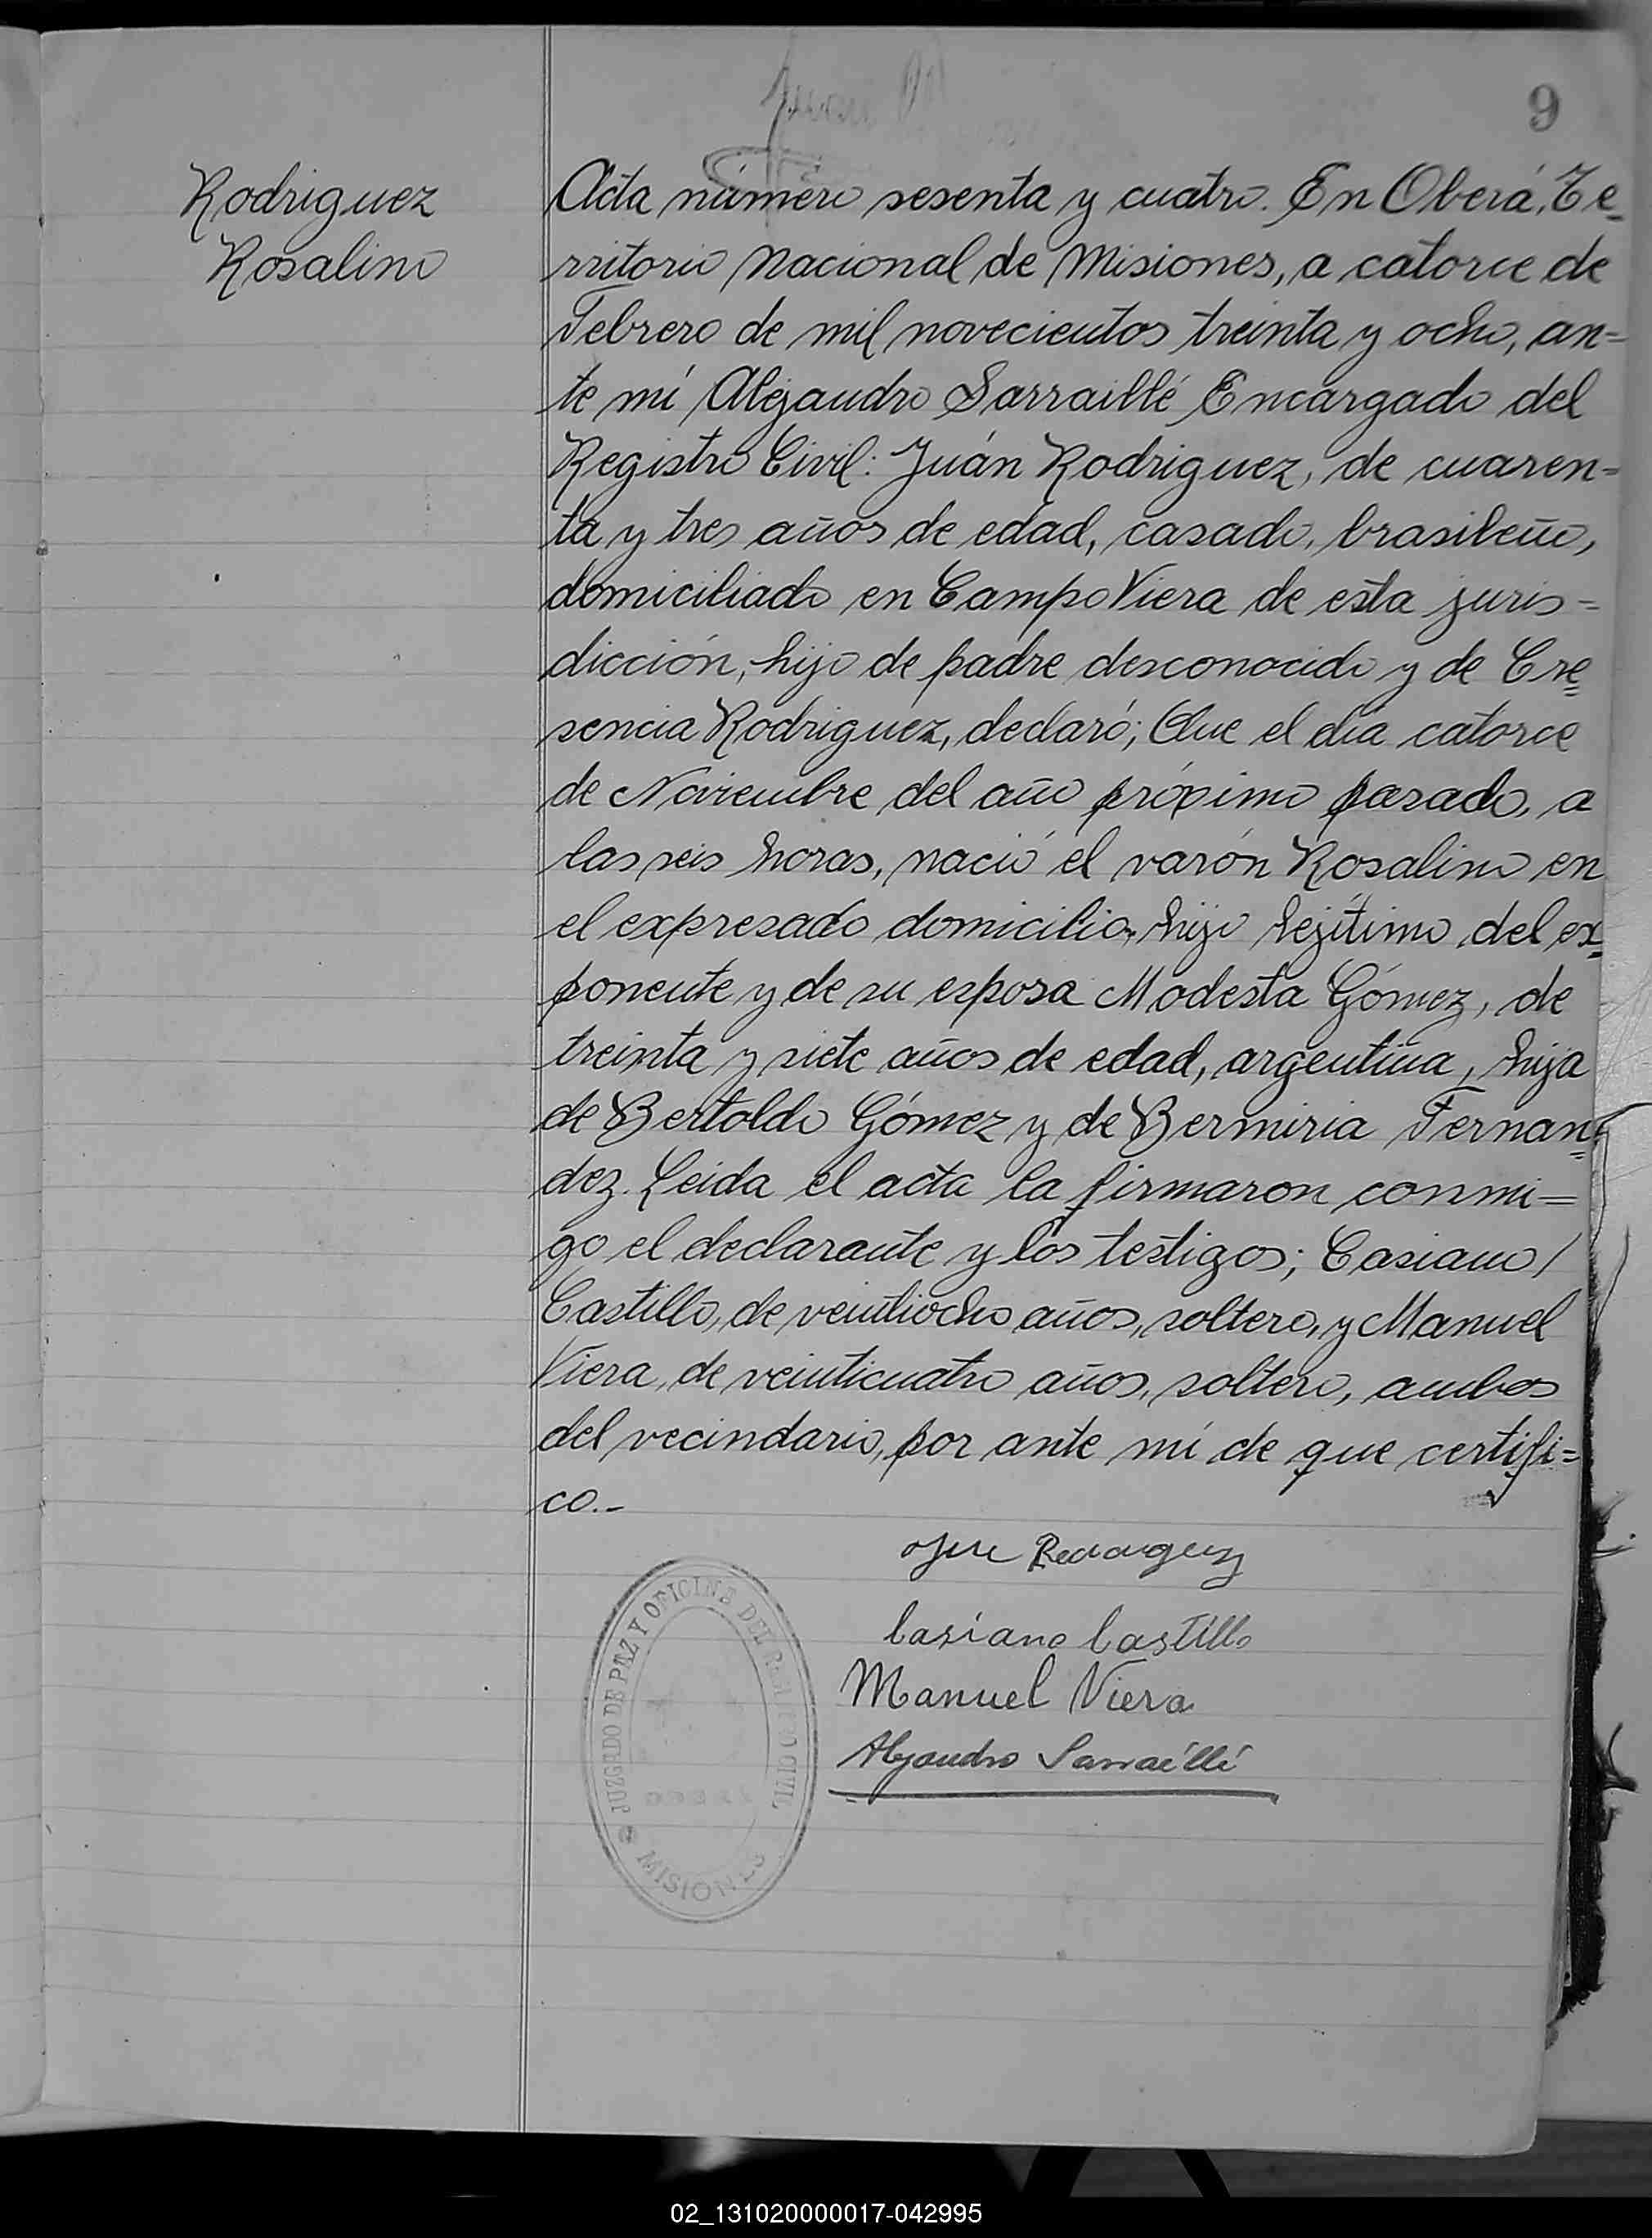 9
Rodriguez
Rosalino
Acta número sesenta y cuatro. En Oberá, Te=
rritorio Nacional de Misiones, a catorce de
Febrero de mil novecientos treinta y ocho, an=
te mí Alejandro Sarraillé Encargado del
Registro Civil: Juán Rodriguez, de cuaren=
ta y tres años de edad, casado, brasileño,
domiciliado en Campo Viera de esta juris=
dicción, hijo de padre desconocido y de Cre=
sencia Rodriguez, declaró; Que el día catorce
de Noviembre del año próximo pasado, a
las seis horas, nació el varón Rosalino en
el expresado domicilio, hijo lejítimo del ex=
ponente y de su esposa Modesta Gómez, de
treinta y siete años de edad, argentina, hija
de Bertoldo Gómez y de Bermiria Fernan=
dez. Leida el acta la firmaron conmi=
go el declarante y los testigos; Casiano /
Castillo, de veintiocho años, soltero, y Manuel
Viera, de veinticuatro años, soltero, ambos
del vecindario, por ante mí de que certifi=
co.-
Casiano Castillo
Manuel Viera
Alejandro Sarraillé
JUZGADO DE PAZ Y OFICINA DEL REGISTRO CIVIL
OBERA
MISIONES
02_131020000017-042995